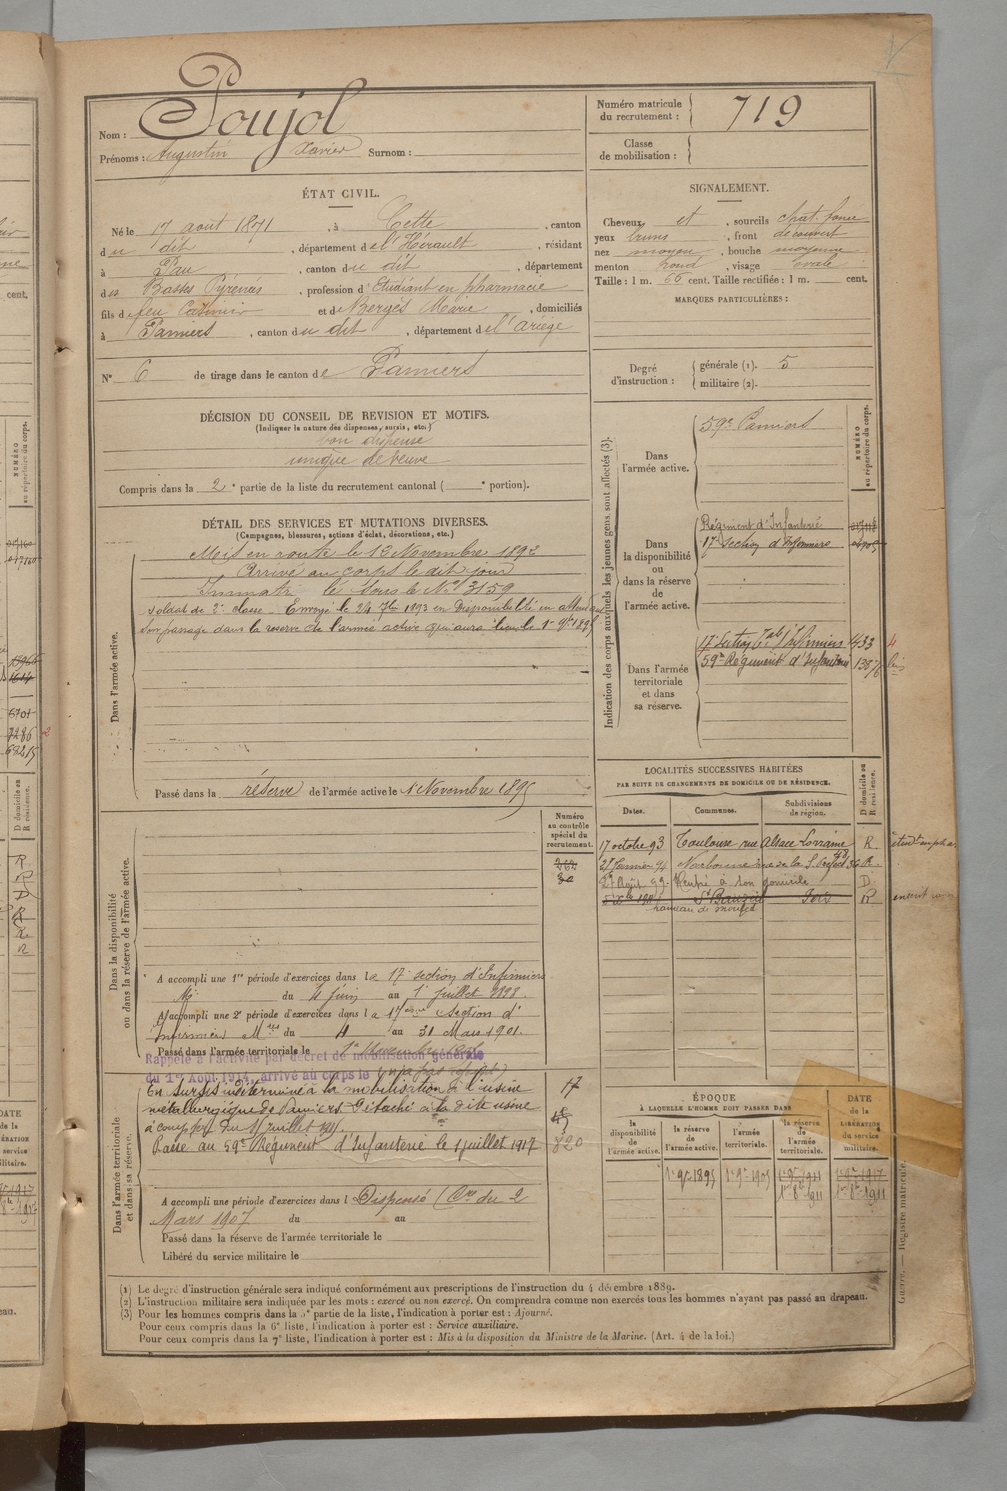 Nom : Poujol
Prénoms : Augustin Xavier Surnom :
Numéro matricule du recrutement : 719
Classe de mobilisation :
ÉTAT CIVIL.
Né le 17 août 1871, à Cette, canton
du dit, département de l'Hérault, résidant
à Pau, canton du dit, département
des Basses Pyrénées, profession d'Etudiant en pharmacie
fils de feu Casimir et de Bergès Marie, domiciliés
à Pamiers, canton du dit, département de l'Ariège
N° 6 de tirage dans le canton de Pamiers
SIGNALEMENT.
Cheveux et, sourcils chat. foncé
yeux bruns, front découvert
nez moyen, bouche moyenne
menton rond, visage ovale
Taille : 1 m. 66 cent. Taille rectifiée : 1 m. cent.
MARQUES PARTICULIÈRES :
Degré d'instruction : générale (1). 5
militaire (2).
DÉCISION DU CONSEIL DE REVISION ET MOTIFS.
(Indiquer la nature des dispenses, sursis, etc.)
bon dispensé
unique de veuve
Compris dans la 2e partie de la liste du recrutement cantonal ( e portion).
DÉTAIL DES SERVICES ET MUTATIONS DIVERSES.
(Campagnes, blessures, actions d'éclat, décorations, etc.)
Dans l'armée active.
Mis en route le 12 Novembre 1892
Arrivé au corps le dit jour
Immatr. lé sous le No 3159
Soldat de 2e classe - Envoyé le 24 7bre 1893 en Disponibilité en attendant
son passage dans la réserve de l'armée active qui aura lieu le 1er 9bre 1895
Passé dans la réserve de l'armée active le 1er Novembre 1895
Indication des corps auxquels les jeunes gens sont affectés (3).
NUMÉRO au répertoire du corps.
Dans l'armée active.
59e Pamiers
Dans la disponibilité ou dans la réserve de l'armée active.
Régiment d'Infanterie
17e Section d'Infirmiers
Dans l'armée territoriale et dans sa réserve.
17e Section d'Infirmiers 1433
59e Régiment d'Infanterie
LOCALITÉS SUCCESSIVES HABITÉES
PAR SUITE DE CHANGEMENTS DE DOMICILE OU DE RÉSIDENCE.
Dates. Communes. Subdivisions de région. D domicile ou R résidence.
17 octobre 93 Toulouse rue Alsace Lorraine R.
27 Janvier 94 Narbonne rue de la S. Préfect. R.
27 Août 99 Rentré à son domicile D.
St Bauzeil R
Numéro au contrôle spécial du recrutement.
262
30
Dans la disponibilité ou dans la réserve de l'armée active.
A accompli une 1re période d'exercices dans la 17e section d'Infirmiers
Mre du 4 Juin au 1er Juillet 1898.
A accompli une 2e période d'exercices dans la 17ème Section d'
Infirmiers Mres du 4 au 31 Mars 1901.
Passé dans l'armée territoriale le 1er Novembre 1905
Rappelé à l'activité par décret de mobilisation générale
du 1er Août 1914, arrivé au corps le
Dans l'armée territoriale et dans sa réserve.
En Sursis indéterminé à la mobilisation à l'usine
métallurgique de Pamiers Détaché à la dite usine
à compter du 1er juillet
Passe au 59e Régiment d'Infanterie le 1 juillet 1917
17
820
A accompli une période d'exercices dans l Dispensé (Cre du 2
Mars 1907 du au
Passé dans la réserve de l'armée territoriale le
Libéré du service militaire le
ÉPOQUE
À LAQUELLE L'HOMME DOIT PASSER DANS
la disponibilité de l'armée active. la réserve de l'armée active. l'armée territoriale. la réserve de l'armée territoriale. DATE de la LIBÉRATION du service militaire.
1er 9bre 1895 1er 9bre 1905 1er 9bre 1911 1er 9bre 1917
1er 8bre 1911
(1) Le degré d'instruction générale sera indiqué conformément aux prescriptions de l'instruction du 4 décembre 1889.
(2) L'instruction militaire sera indiquée par les mots : exercé ou non exercé. On comprendra comme non exercés tous les hommes n'ayant pas passé au drapeau.
(3) Pour les hommes compris dans la 5e partie de la liste, l'indication à porter est : Ajourné.
Pour ceux compris dans la 6e liste, l'indication à porter est : Service auxiliaire.
Pour ceux compris dans la 7e liste, l'indication à porter est : Mis à la disposition du Ministre de la Marine. (Art. 4 de la loi.)
Guerre. — Registre matricule.